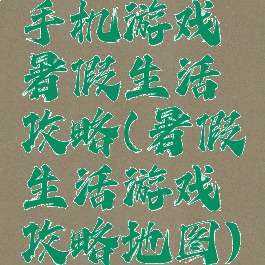 手机游戏
暑假生活
攻略(暑假
生活游戏
攻略地图)